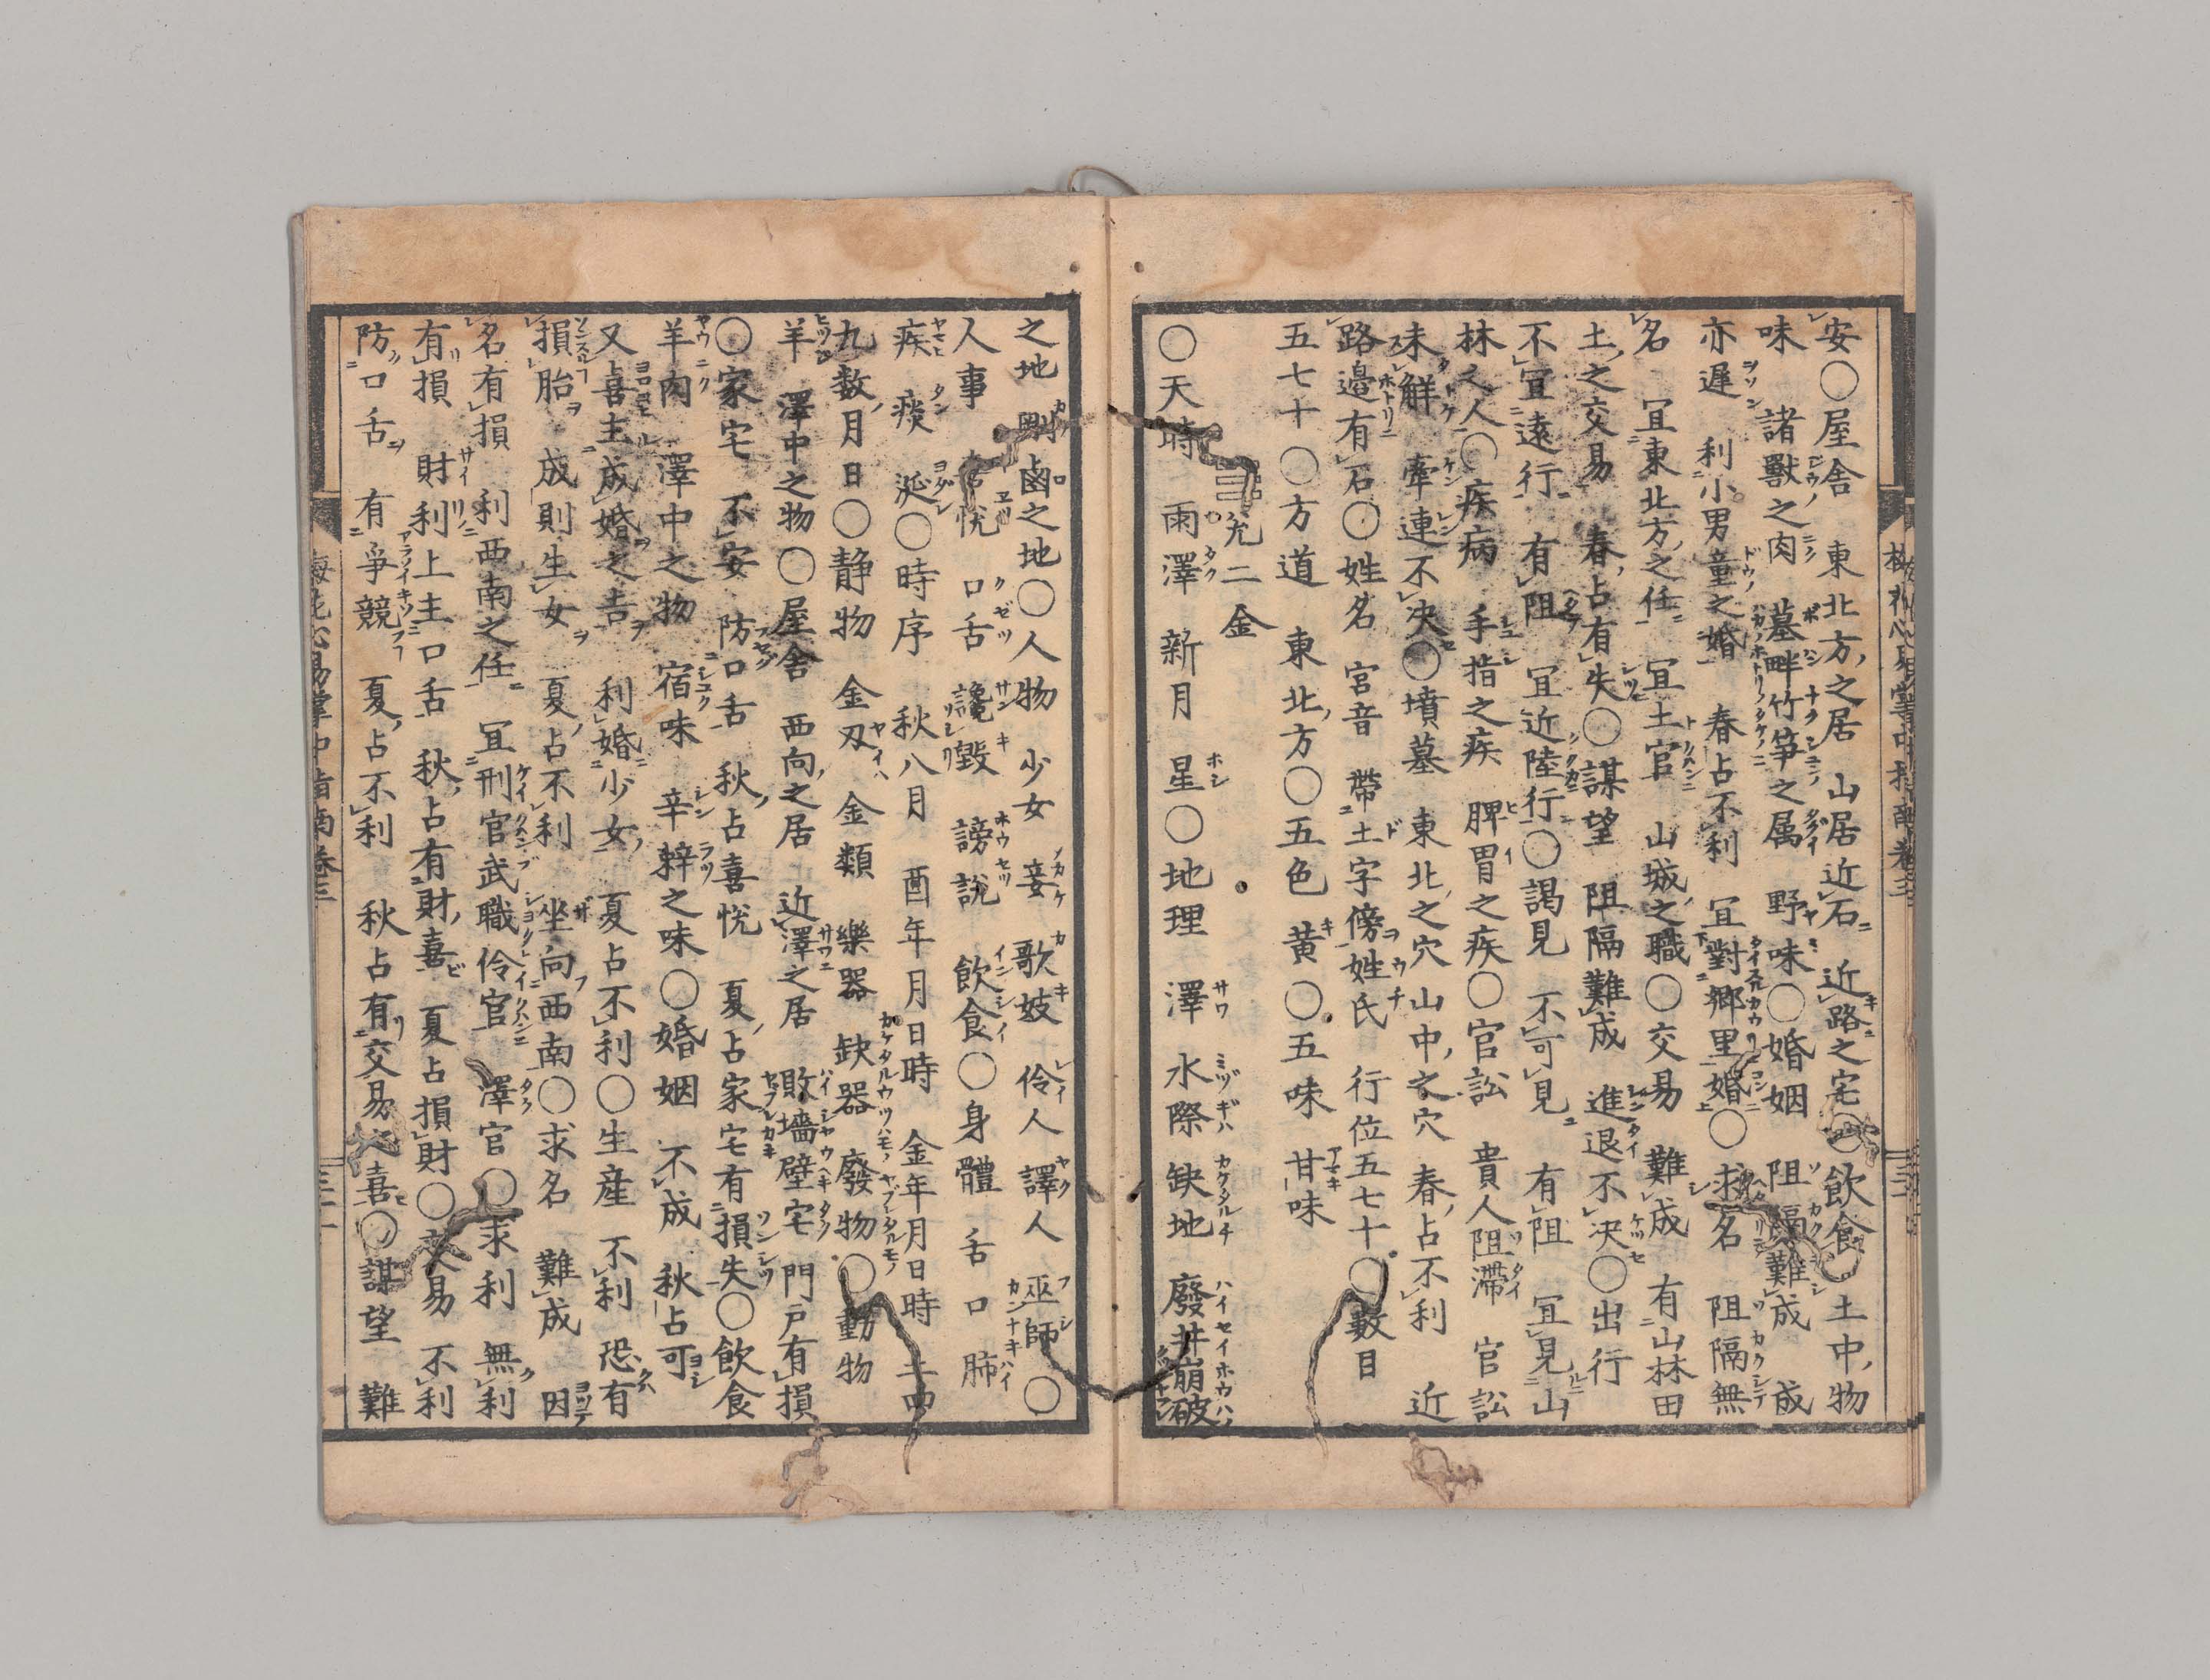 安〇屋舎　東北方之居　山居近石　近路之宅〇飲食〇土中物
味　諸獸之肉　墓畔竹笋之属　野味〇婚姻　阻隔難成　成
亦遅　利小男童之婚　春占不利　冝對郷里婚〇求名　阻隔無
名　冝東北方之任　冝土官　山城之職〇交易　難成　有山林田
土之交易　春占有失〇謀望　阻隔難成　進退不决〇出行
不冝遠行　有阻　冝近陸行〇謁見　不可見　有阻　冝見山
林之人〇疾病　手指之疾　脾胃之疾〇官訟　貴人阻滞　官訟
未解　牽連不决〇墳墓　東北之穴　山中之穴　春占不利　近
路邉有石〇姓名　宮音　帶土字傍姓氏　行位五七十〇數目
五七十〇方道　東北方〇五色　黄〇五味　甘味
☱兊二金
〇天時　雨澤　新月　星〇地理　澤　水際　缺地　廢井崩破
之地　剛鹵之地〇人物　少女　妾　歌妓　伶人　譯人　巫師〇
人事　喜悦　口舌　讒毀　謗說　飲食〇身體　舌　口　肺
疾　痰　涎〇時序　秋八月　酉年月日時　金年月日時　二四
九数月日〇静物　金刄　金類　樂器　缺器　廢物〇動物
羊　澤中之物〇屋舎　西向之居　近澤之居　敗墻壁宅　門戸有損
〇家宅　不安　防口舌　秋占喜悦　夏占家宅有損失〇飲食
羊肉　澤中之物　宿味　辛辣之味〇婚姻　不成　秋占可
又喜主成婚之吉　利婚少女　夏占不利〇生産　不利　恐有
損胎　成則生女　夏占不利　坐向西南〇求名　難成　因
名有損　利西南之任　冝刑官武職伶官　澤官〇求利　無利
有損　財利上主口舌　秋占有財喜　夏占損財〇交易　不利
防口舌　有爭競　夏占不利　秋占有交易之喜〇謀望　難
梅花心易掌中指南卷三